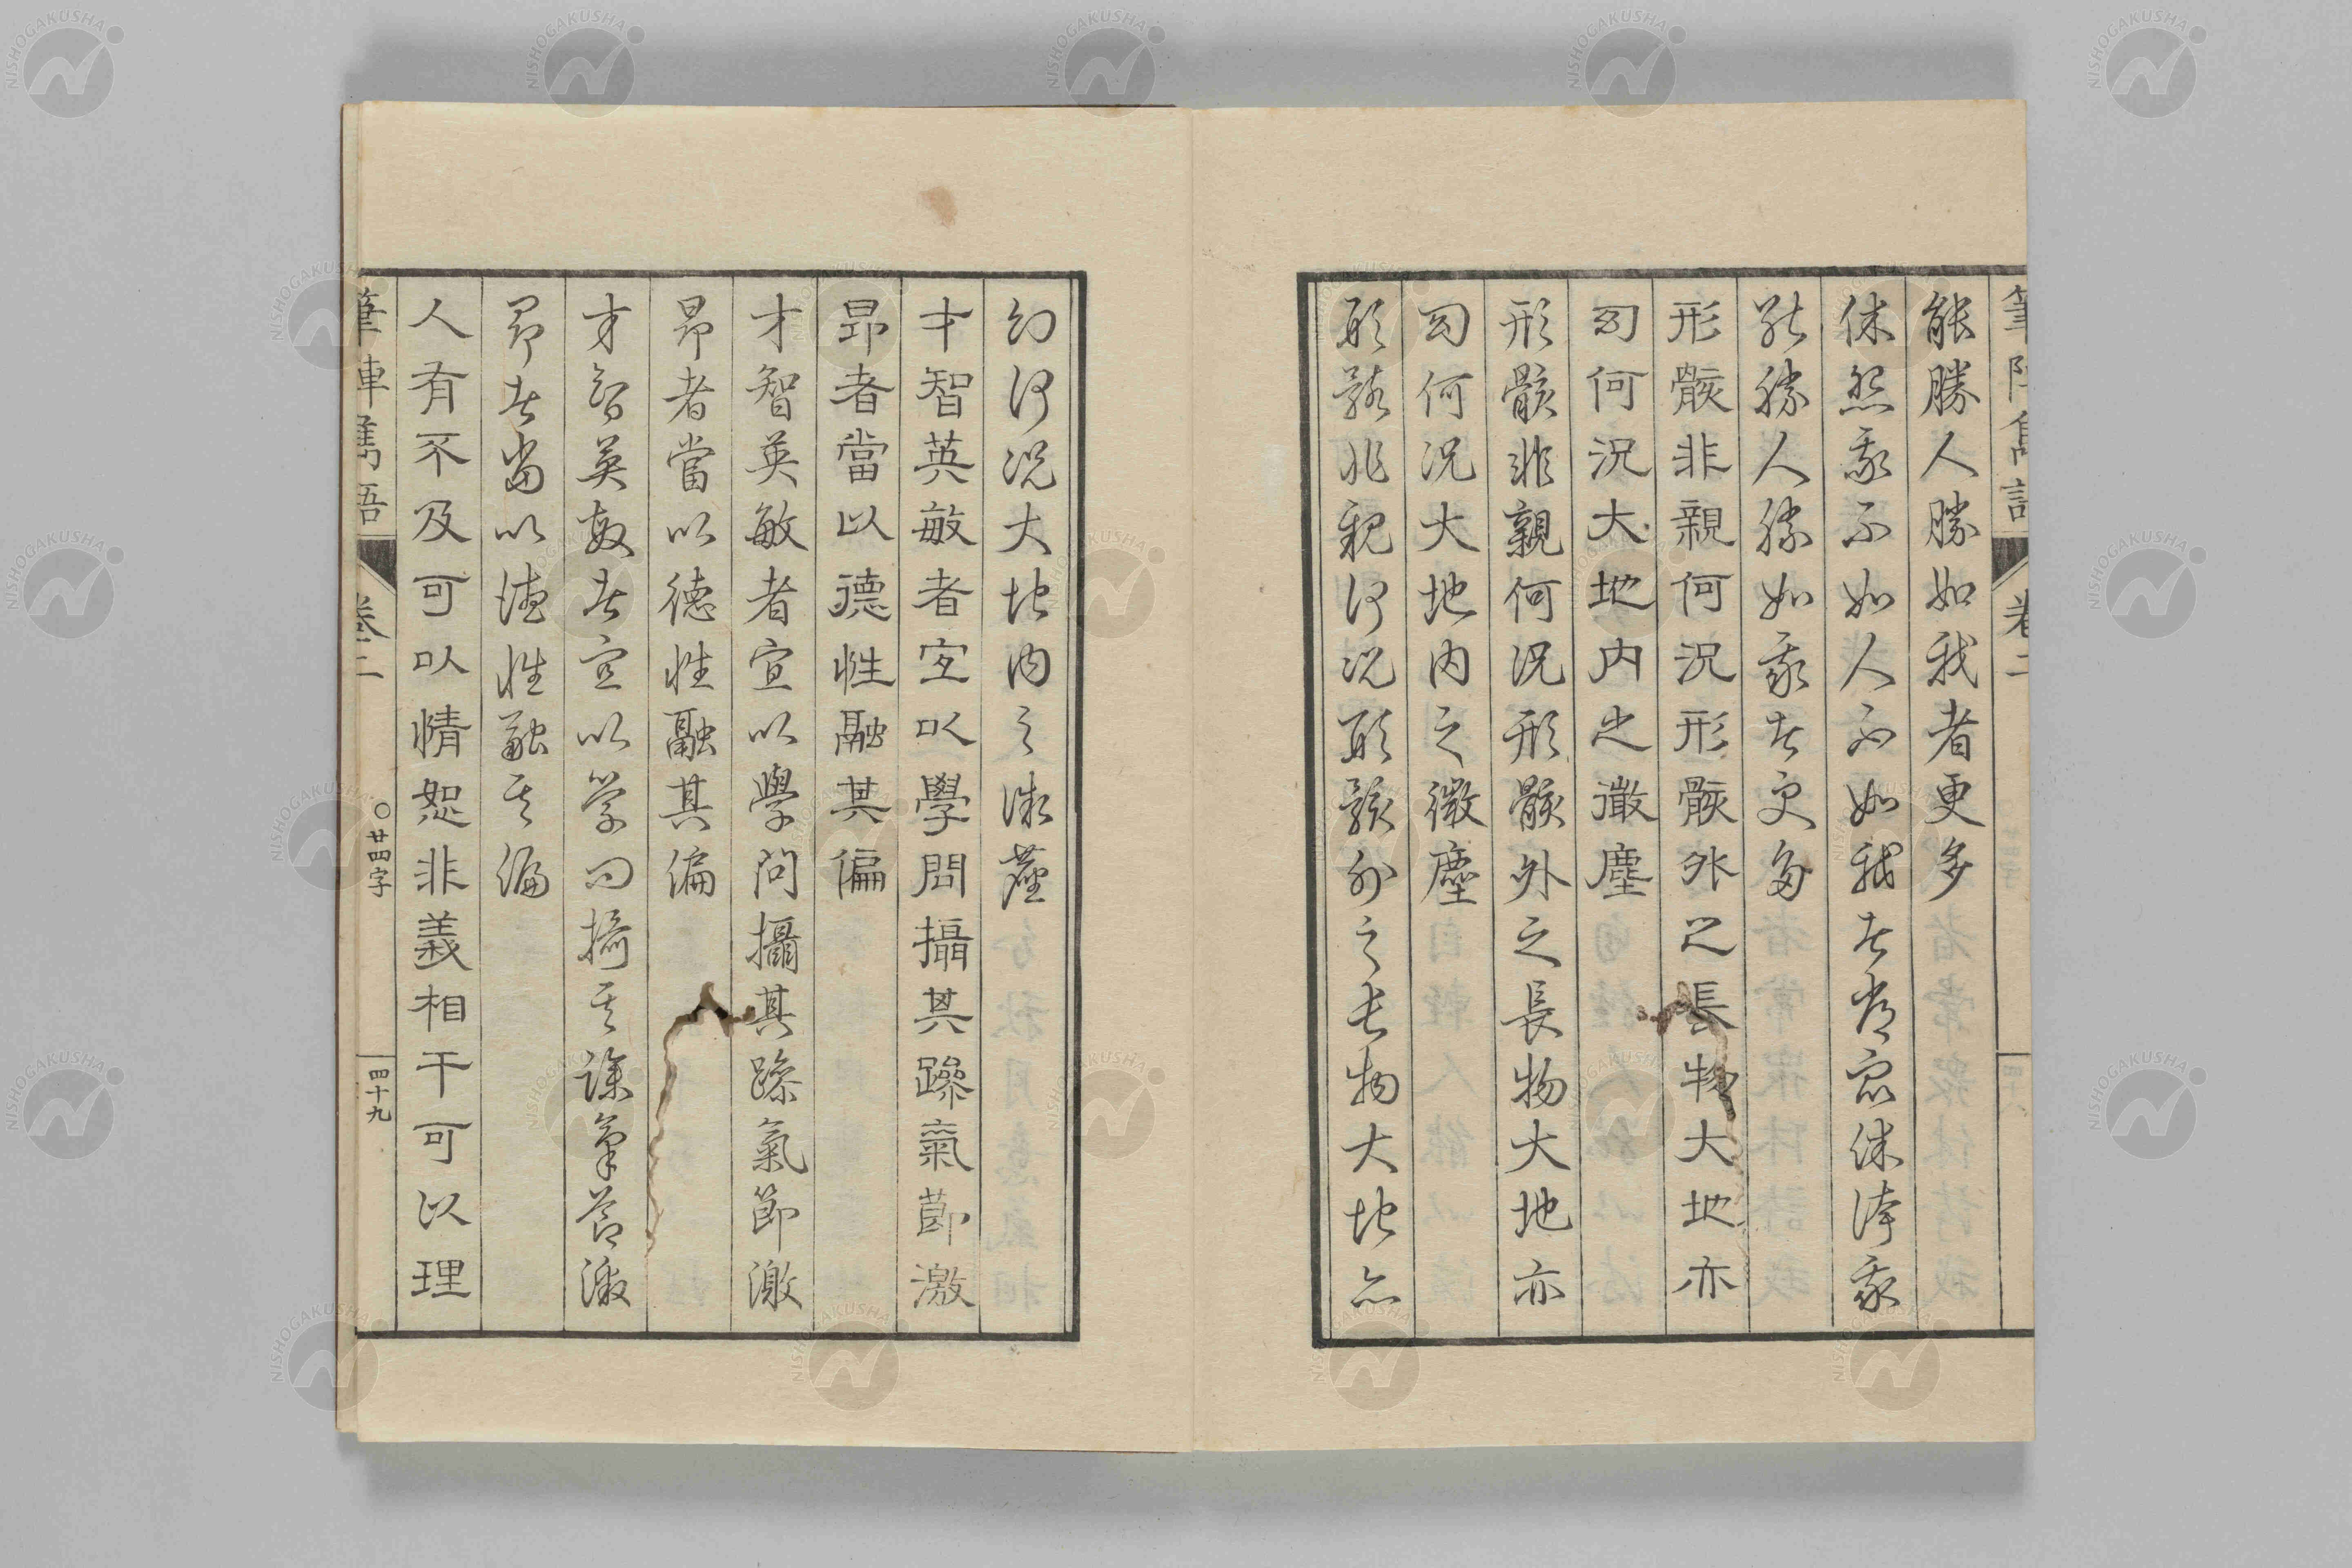 筆陣雋語 卷二
能勝人勝如我者更多
休怨我不如人不如我者尚衆休誇我
能勝人勝如我者更多
形骸非親何況形骸外之長物大地亦
幻何況大地内之微塵
形骸非親何況形骸外之長物大地亦
幻何況大地内之微塵
形骸非親何況形骸外之長物大地亦
幻何況大地内之微塵
才智英敏者宜以學問攝其躁氣節激
昂者當以德性融其偏
才智英敏者宜以學問攝其躁氣節激
昂者當以德性融其偏
才智英敏者宜以学問攝其躁氣節激
昂者當以德性融其偏
人有不及可以情恕非義相干可以理
筆陣雋語 卷二 ○廿四字 四十九
NISHOGAKUSHA